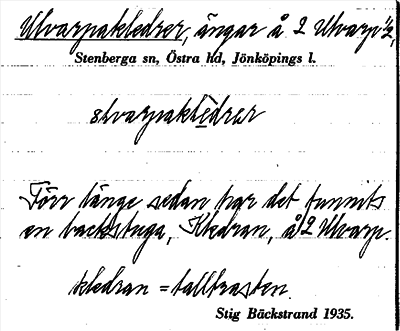 Ulvarpakledrer, ängar å 2 Ulvarp ½,
Stenberga sn, Östra hd, Jönköpings l.
ulvarpaklèdrar
Förr länge sedan har det funnits
en backstuga, Kledran, å 2 Ulvarp.
kledran = talltrasten.
Stig Bäckstrand 1935.